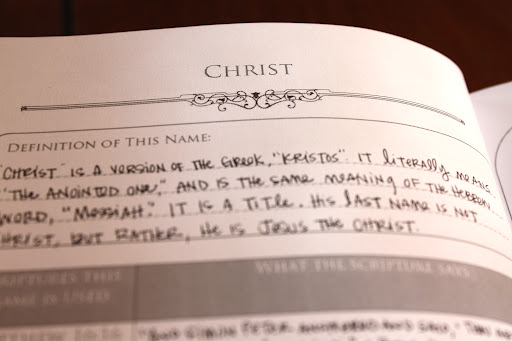 CHRIST
DEFINITION OF THIS NAME:
"CHRIST" IS A VERSION OF THE GREEK, "KRISTOS". IT LITERALLY MEANS
"THE ANOINTED ONE", AND IS THE SAME MEANING OF THE HEBREW
WORD, "MESSIAH." IT IS A TITLE. HIS LAST NAME IS NOT
CHRIST, BUT RATHER, HE IS JESUS THE CHRIST.
SCRIPTURES THIS
NAME IS USED
WHAT THE SCRIPTURE SAYS
"AND SIMON PETER ANSWERED AND SAID, "THOU